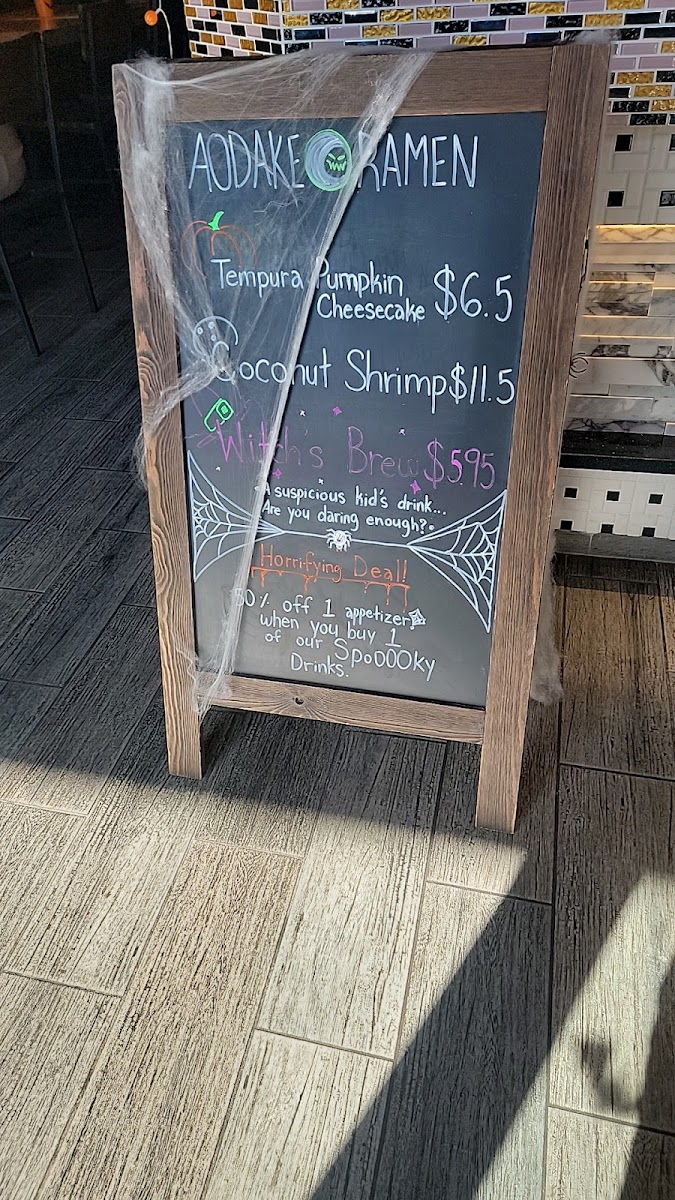 AODAKE RAMEN
Tempura Pumpkin
Cheesecake $6.5
Coconut Shrimp $11.5
Witch's Brew $5.95
A suspicious kid's drink...
Are you daring enough?
Horrifying Deal!
% off 1 appetizer
when you buy 1
of our SpoOOOky
Drinks.